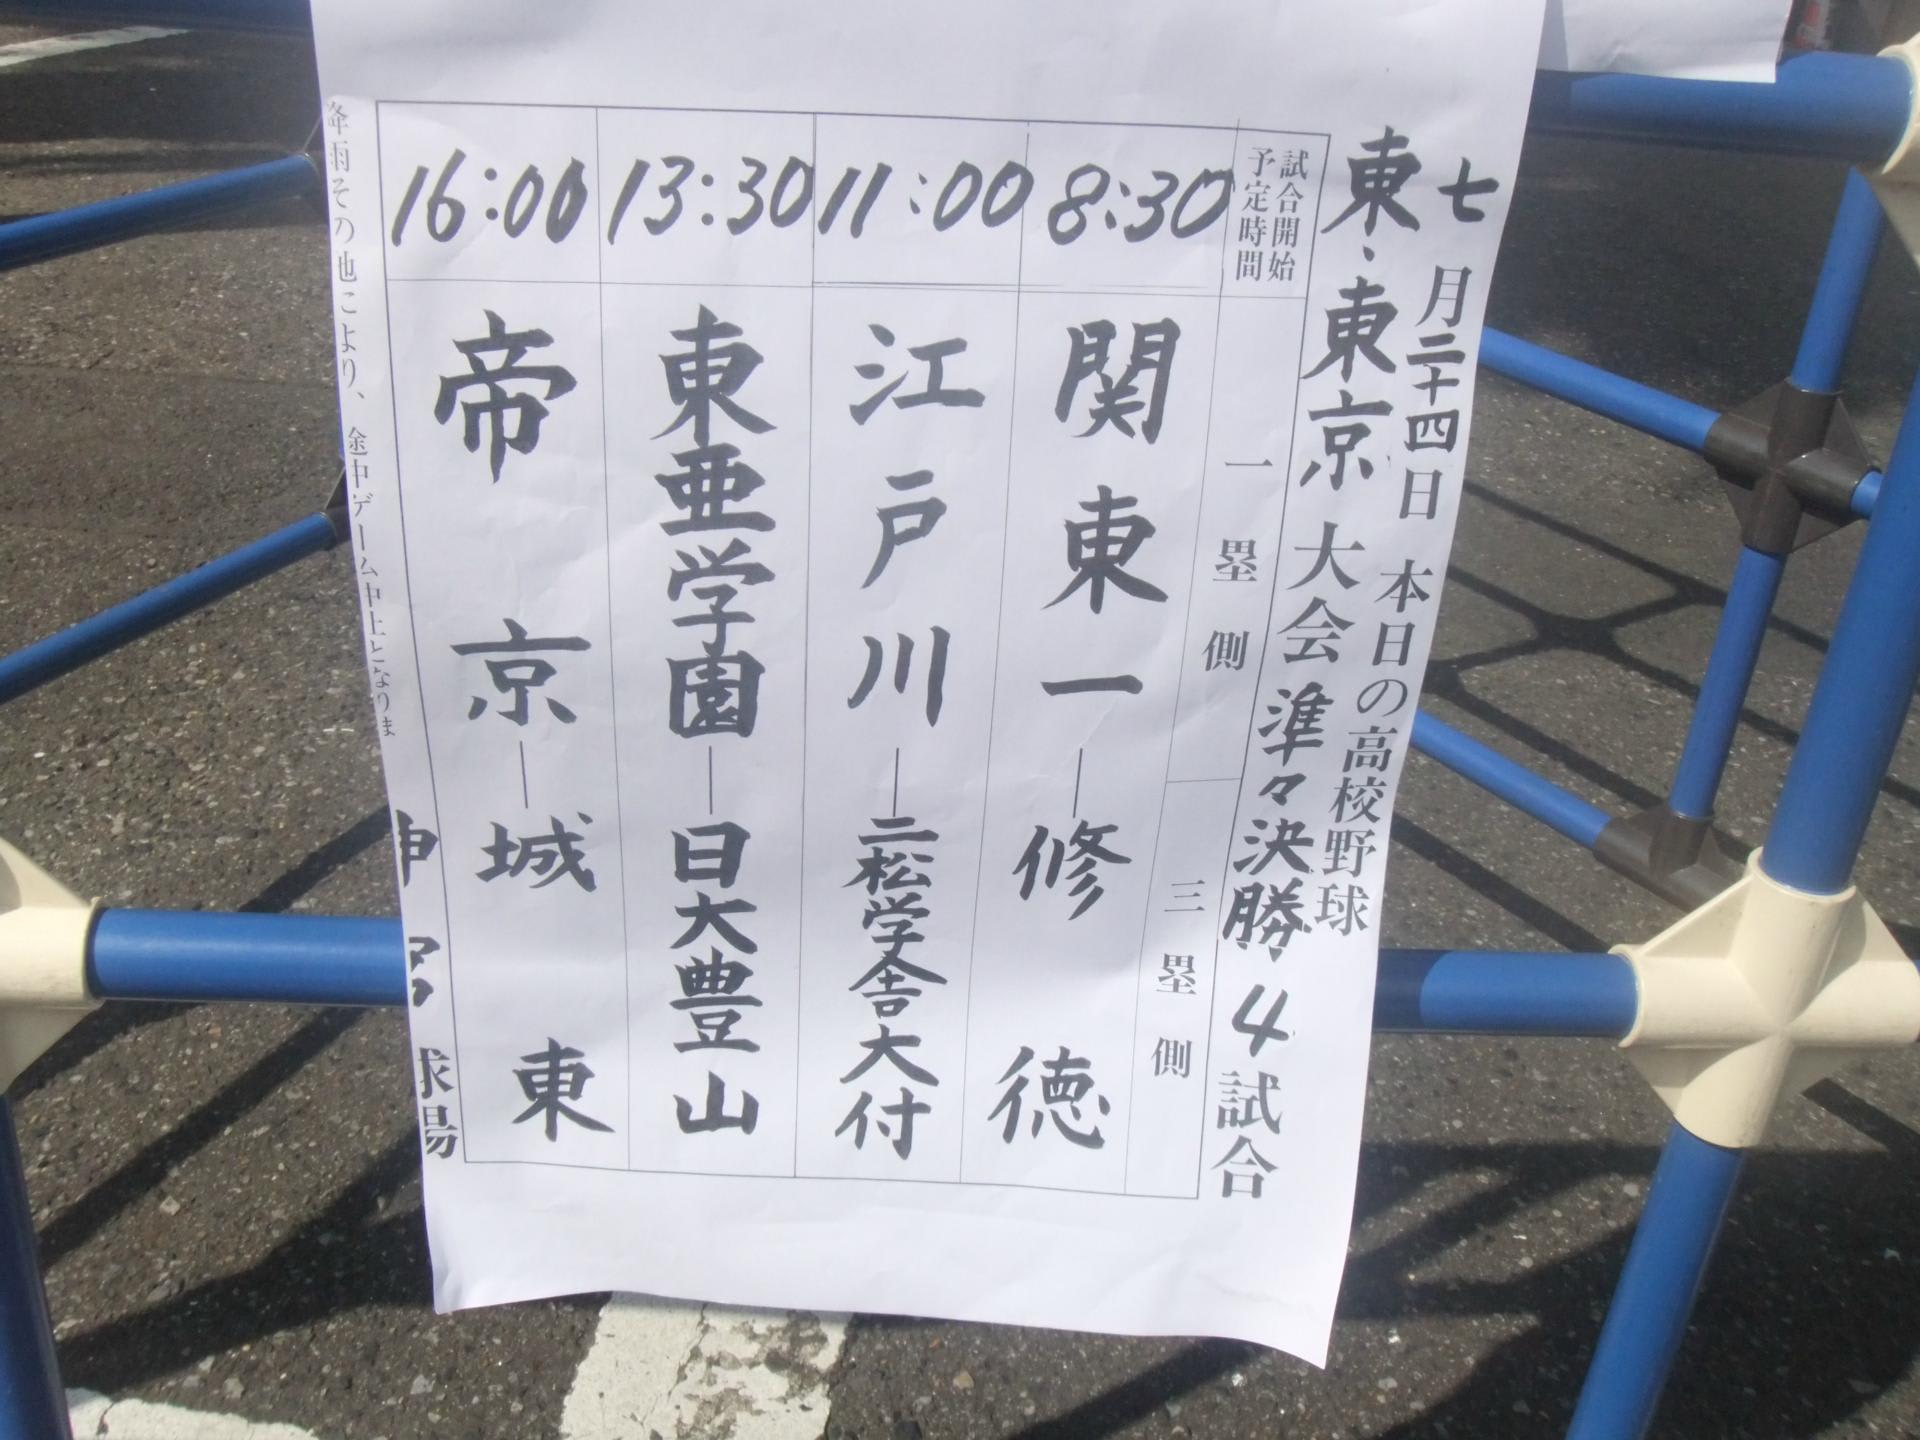 七月二十四日 本日の高校野球
東・東京大会準々決勝4試合
試合開始
予定時間
一塁側
三塁側
8:30
関東一―修徳
11:00
江戸川―二松学舎大付
13:30
東亜学園―日大豊山
16:00
帝京―城東
降雨その他により、途中ゲーム中止となりま
球場